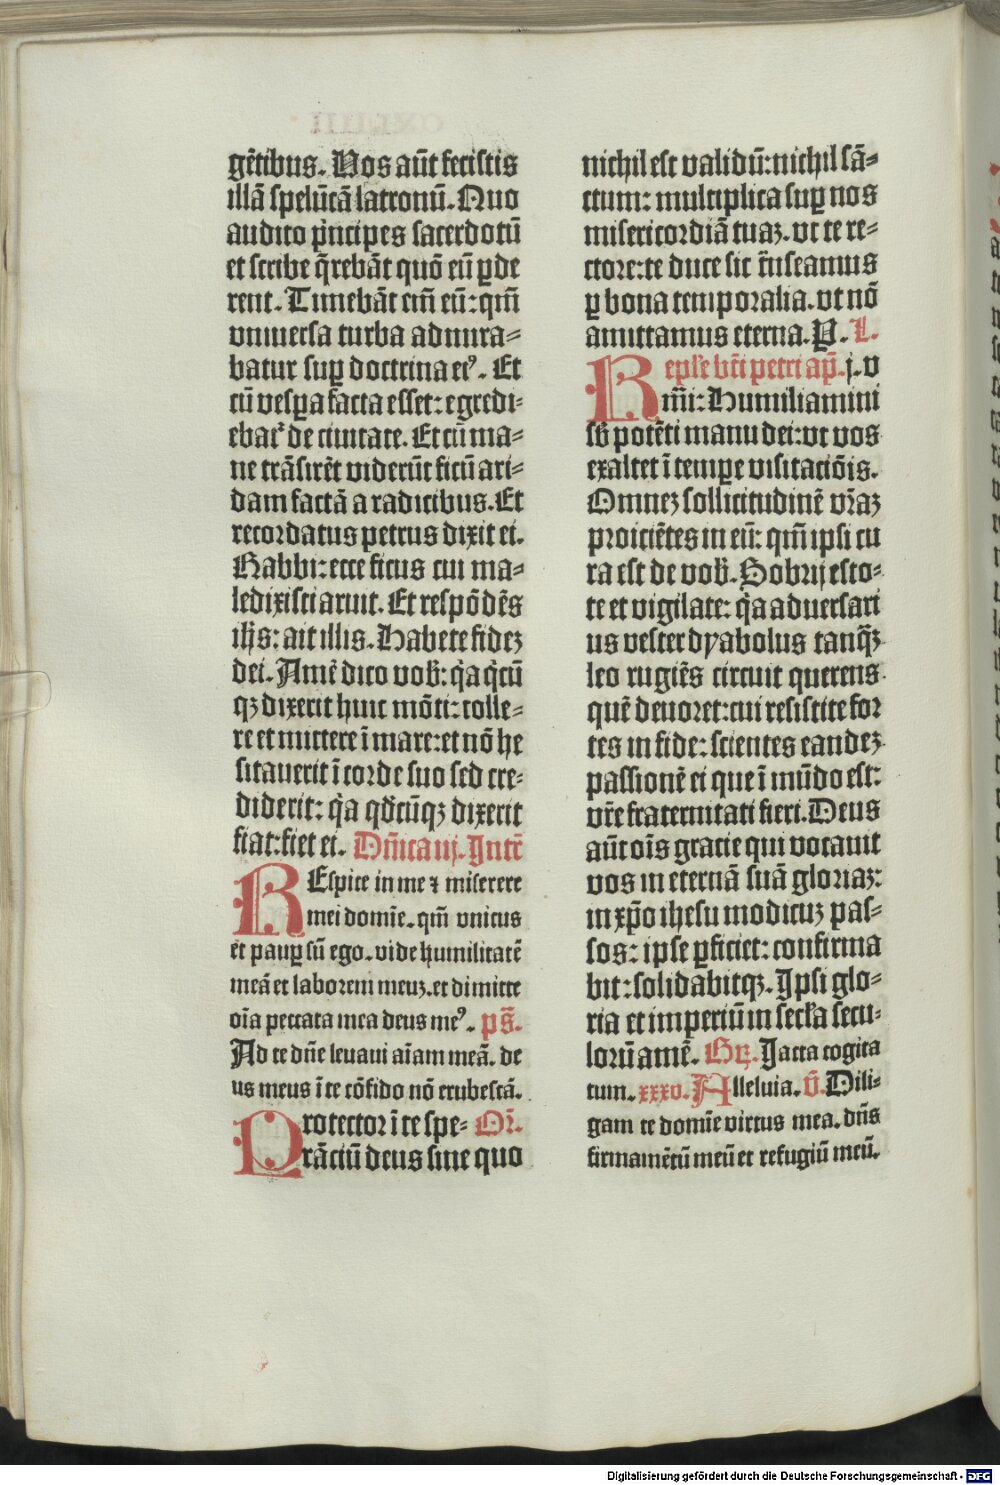 gētibus. Vos aūt fecistis
illā spelūcā latronū. Quo
audito p̄ncipes sacerdotū
et scribe q̄rebāt quō eū ꝑde
rent. Timebāt em̄ eū: qm̄
vniuersa turba admira-
batur suꝑ doctrina eiꝰ. Et
cū vesꝑa facta esset: egredi-
ebat᷑ de ciuitate. Et cū ma-
ne trāsirēt viderūt ficū ari-
dam factā a radicibus. Et
recordatus petrus dixit ei.
Rabbi: ecce ficus cui ma-
ledixisti aruit. Et respōdēs
ihs̄: ait illis. Habete fidez
dei. Amē dico vob̄: q̄a q̄cū
qꝫ dixerit huic mōti: tolle-
re et mittere ī mare: et nō he
sitauerit ī corde suo sed cre-
diderit: q̄a qd̄cūqꝫ dixerit
fiat: fiet ei. Dn̄ica iij. Intr̄
REspice in me ⁊ miserere
mei domīe. qm̄ vnicus
et pauꝑ sū ego. vide humilitatē
meā et laborem meuz. et dimitte
oīa peccata mea deus meꝰ. ps̄.
Ad te dn̄e leuaui aīam meā. de
us meus ī te cōfido nō erubescā.
Protector ī te spe- Or̄.
rāciū deus sine quo
nichil est validū: nichil sā-
ctum: multiplica suꝑ nos
misericordiā tuaz. vt te re-
ctore: te duce sic trāseamus
ꝑ bona temporalia. vt nō
amittamus eterna. P. L.
Ep̄le bt̄i petri ap̄. j. v
Rm̄i: Humiliamini
sb̄ potēti manu dei: vt vos
exaltet ī tempe visitaciōis.
Omnez sollicitudinē vr̄az
proiciētes in eū: qm̄ ipsi cu
ra est de vob̄. Sobrij esto-
te et vigilate: q̄a aduersari
us vester dyabolus tanqꝫ
leo rugiēs circuit querens
quē deuoret: cui resistite for
tes in fide: scientes eandez
passionē ei que ī mūdo est:
vr̄e fraternitati fieri. Deus
aūt oīs gracie qui vocauit
vos in eternā suā gloriaz:
in xp̄o ihesu modicuz pas-
sos: ipse ꝑficiet: confirma
bit: solidabitqꝫ. Ipsi glo-
ria et imperiū in secl̄a secu-
lorū amē. Gr̄. Iacta cogita
tum. xxxv. Alleluia. v̄. Dili-
gam te domīe virtus mea. dn̄s
firmamētū meū et refugiū meū.
Digitalisierung gefördert durch die Deutsche Forschungsgemeinschaft - DFG